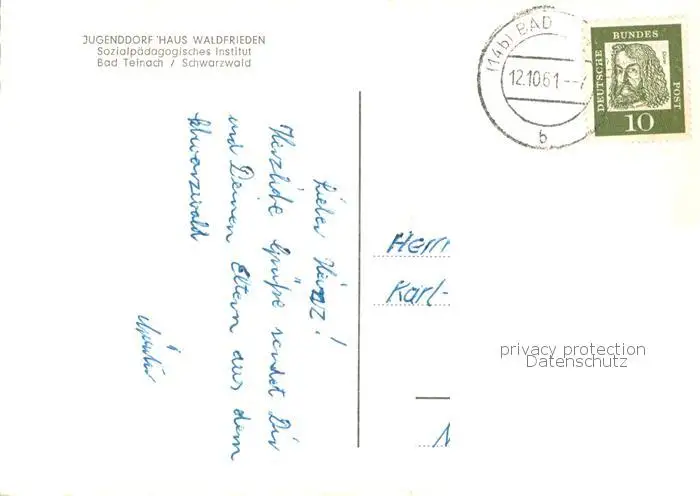 JUGENDDORF 'HAUS WALDFRIEDEN
Sozialpädagogisches Institut
Bad Teinach / Schwarzwald
(14b) BAD
12.10.61--7
b
DEUTSCHE
BUNDES
POST
Dürer
10
Lieber Heinz!
Herzliche Grüße sendet Dir
und Deinen Eltern aus dem
Schwarzwald
Herrn
Karl-
privacy protection
Datenschutz